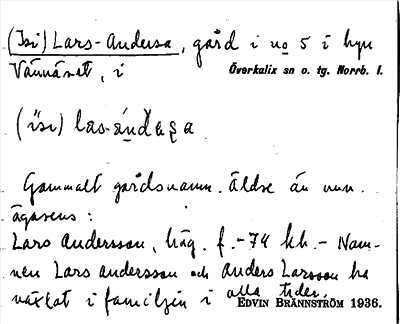 (Isi) Lars-Andersa, gård i no 5 i byn
Vännäset, i Överkalix sn o. tg. Norrb. l.
(isi) las-ánda̢a
Gammalt gårdsnamn. Äldre än nuv.
ägarens:
Lars Andersson, häg. f. -74 kb. - Nam-
nen Lars Andersson och Anders Larsson ha
växlat i familjen i alla tider.
EDVIN BRÄNNSTRÖM 1936.